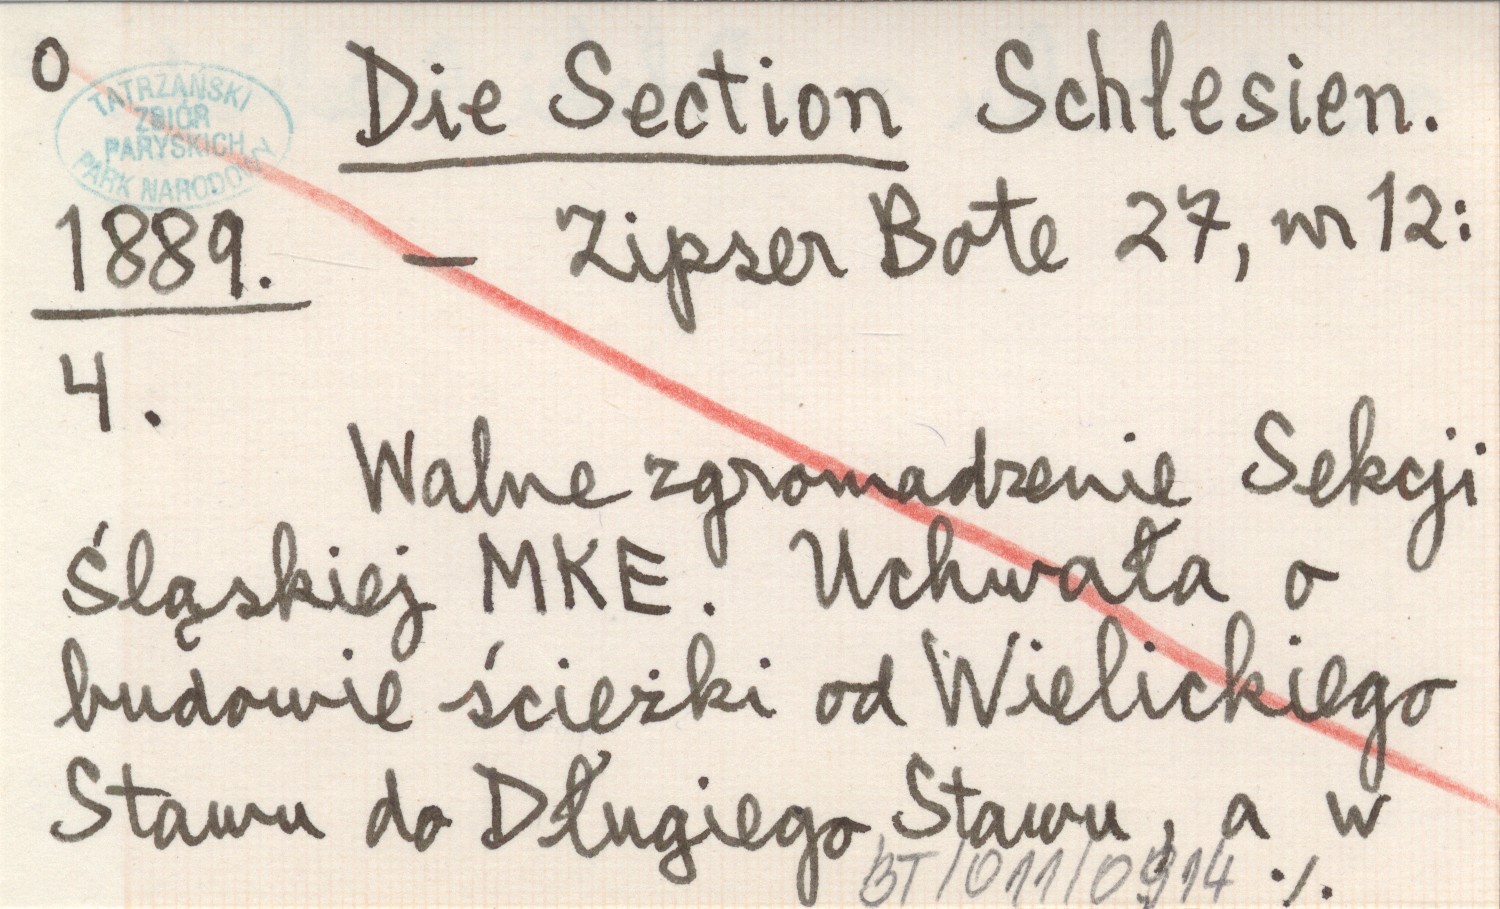 o
TATRZAŃSKI
ZBIÓR
PARYSKICH
PARK NARODOWY
Die Section Schlesien.
1889. – Zipser Bote 27, nr 12:
4.
Walne zgromadzenie Sekcji
Śląskiej MKE. Uchwała o
budowie ścieżki od Wielickiego
Stawu do Długiego Stawu, a w
BT/011/0914 ./.